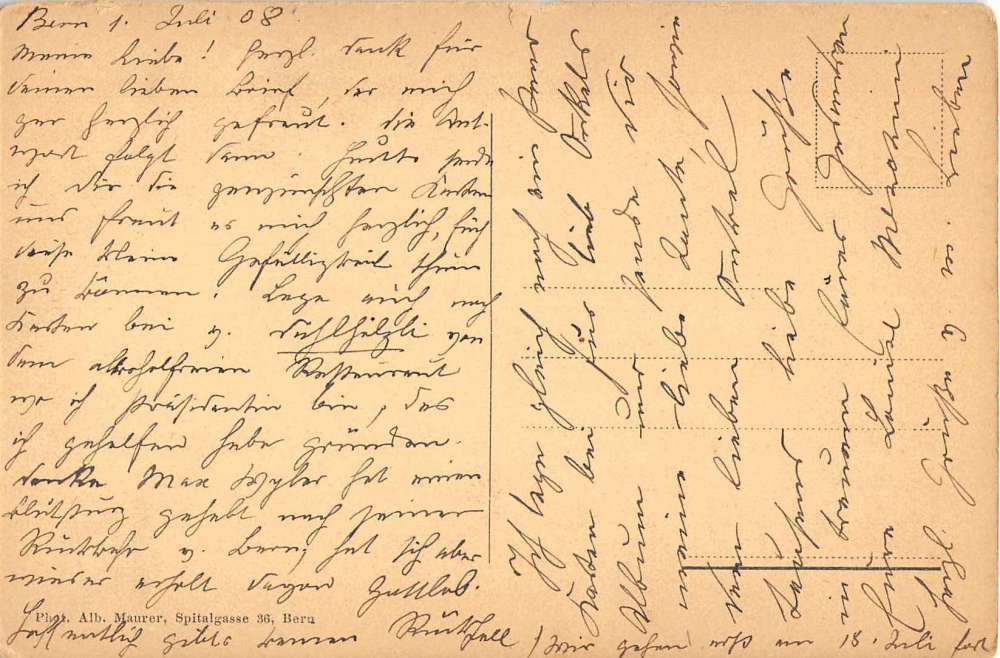 Bern 1. Juli 08
Meine Liebe! Herzl. Dank für
deinen lieben Brief, der mich
gar herzlich gefreut. Die Ant-
wort folgt dann. Heute sende
ich dir die gewünschten Karten
uns freut es mich herzlich,
diese kleine Gefälligkeit thun
zu können. Lege auch noch
Karten bei v. Dählhölzli von
dem alkoholfreien Restaurant
wo ich Präsidentin bin, das
ich geholfen habe gründen.
Denke Max Wyler hat einen
Blutsturz gehabt nach seiner
Rückkehr v. Bern, hat sich aber
wieder erholt davon gottlob.
Hoffentlich gibts keinen Rückfall
) Wir gehen erst am 18. Juli fort
Phot. Alb. Maurer, Spitalgasse 36, Bern
Ich lege gleich noch ein paar
Karten bei für lieb Onkels
Album und sende dir
meine liebe Tante, sowie
dem lieben Onkel
tausend liebe Grüsse
in treuem
Eure